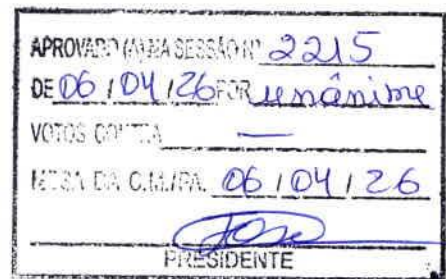 APROVADO (A) NA SESSÃO Nº 2215
DE 06 / 04 / 26 POR unânime
VOTOS CONTRA —
MESA DA C.M./PA. 06 / 04 / 26
PRESIDENTE